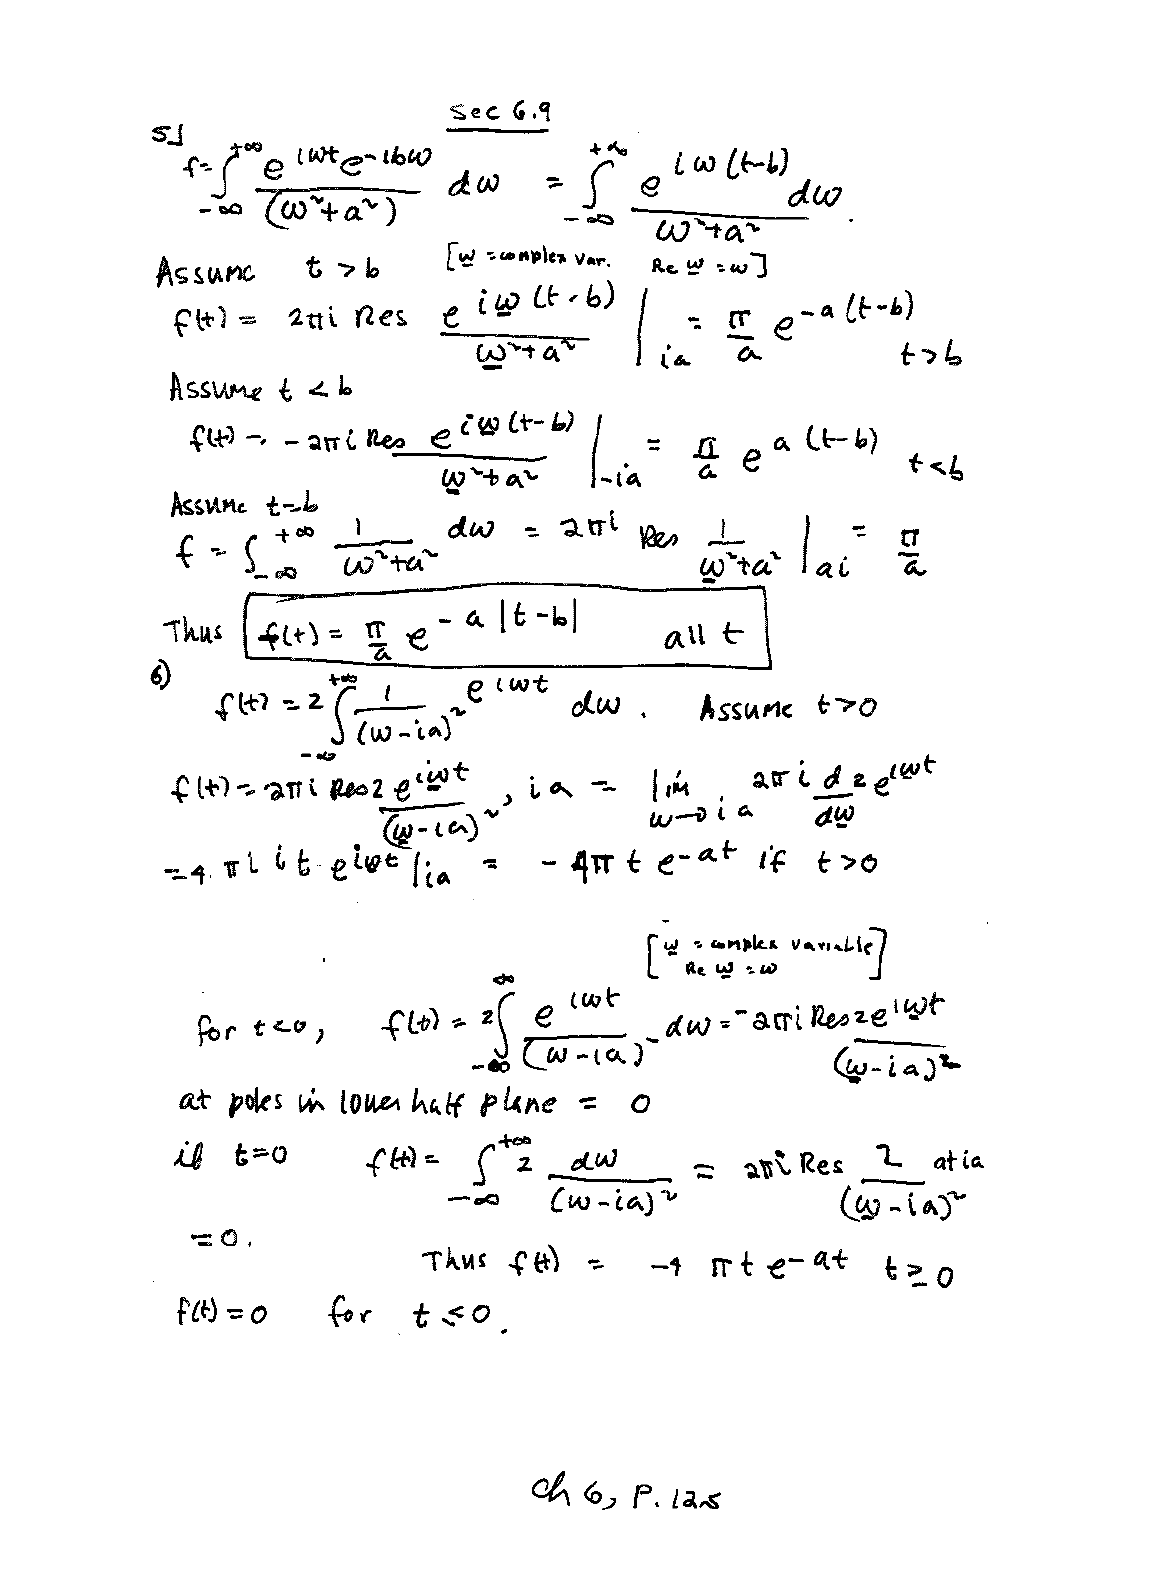 Sec 6.9
5] f = ∫_{-∞}^{+∞} e^{iωt} e^{-ibω} / (ω²+a²) dω = ∫_{-∞}^{+∞} e^{iω(t-b)} / (ω²+a²) dω.
Assume t > b [w̲ = complex var. Re w̲ = ω]
f(t) = 2πi Res e^{iw̲(t-b)} / (w̲²+a²) |_{ia} = π/a e^{-a(t-b)} t>b
Assume t < b
f(t) = -2πi Res e^{iw̲(t-b)} / (w̲²+a²) |_{-ia} = π/a e^{a(t-b)} t<b
Assume t=b
f = ∫_{-∞}^{+∞} 1/(ω²+a²) dω = 2πi Res 1/(w̲²+a²) |_{ai} = π/a
Thus f(t) = π/a e^{-a|t-b|} all t
6) f(t) = 2 ∫_{-∞}^{+∞} 1/(ω-ia)² e^{iωt} dω. Assume t>0
f(t) = 2πi Res 2 e^{iw̲t} / (w̲-ia)², ia = lim_{w→ia} 2πi d/dw̲ 2 e^{iωt}
= 4πi it e^{iw̲t} |_{ia} = -4π t e^{-at} if t>0
[w̲ = complex variable Re w̲ = ω]
for t<0, f(t) = 2 ∫_{-∞}^{∞} e^{iωt} / (ω-ia)² dω = -2πi Res 2 e^{iw̲t} / (w̲-ia)²
at poles in lower half plane = 0
if t=0 f(t) = ∫_{-∞}^{+∞} 2 dω/(ω-ia)² = 2πi Res 2/(w̲-ia)² at ia
= 0. Thus f(t) = -4πt e^{-at} t≥0
f(t) = 0 for t ≤ 0.
Ch 6, P. 125